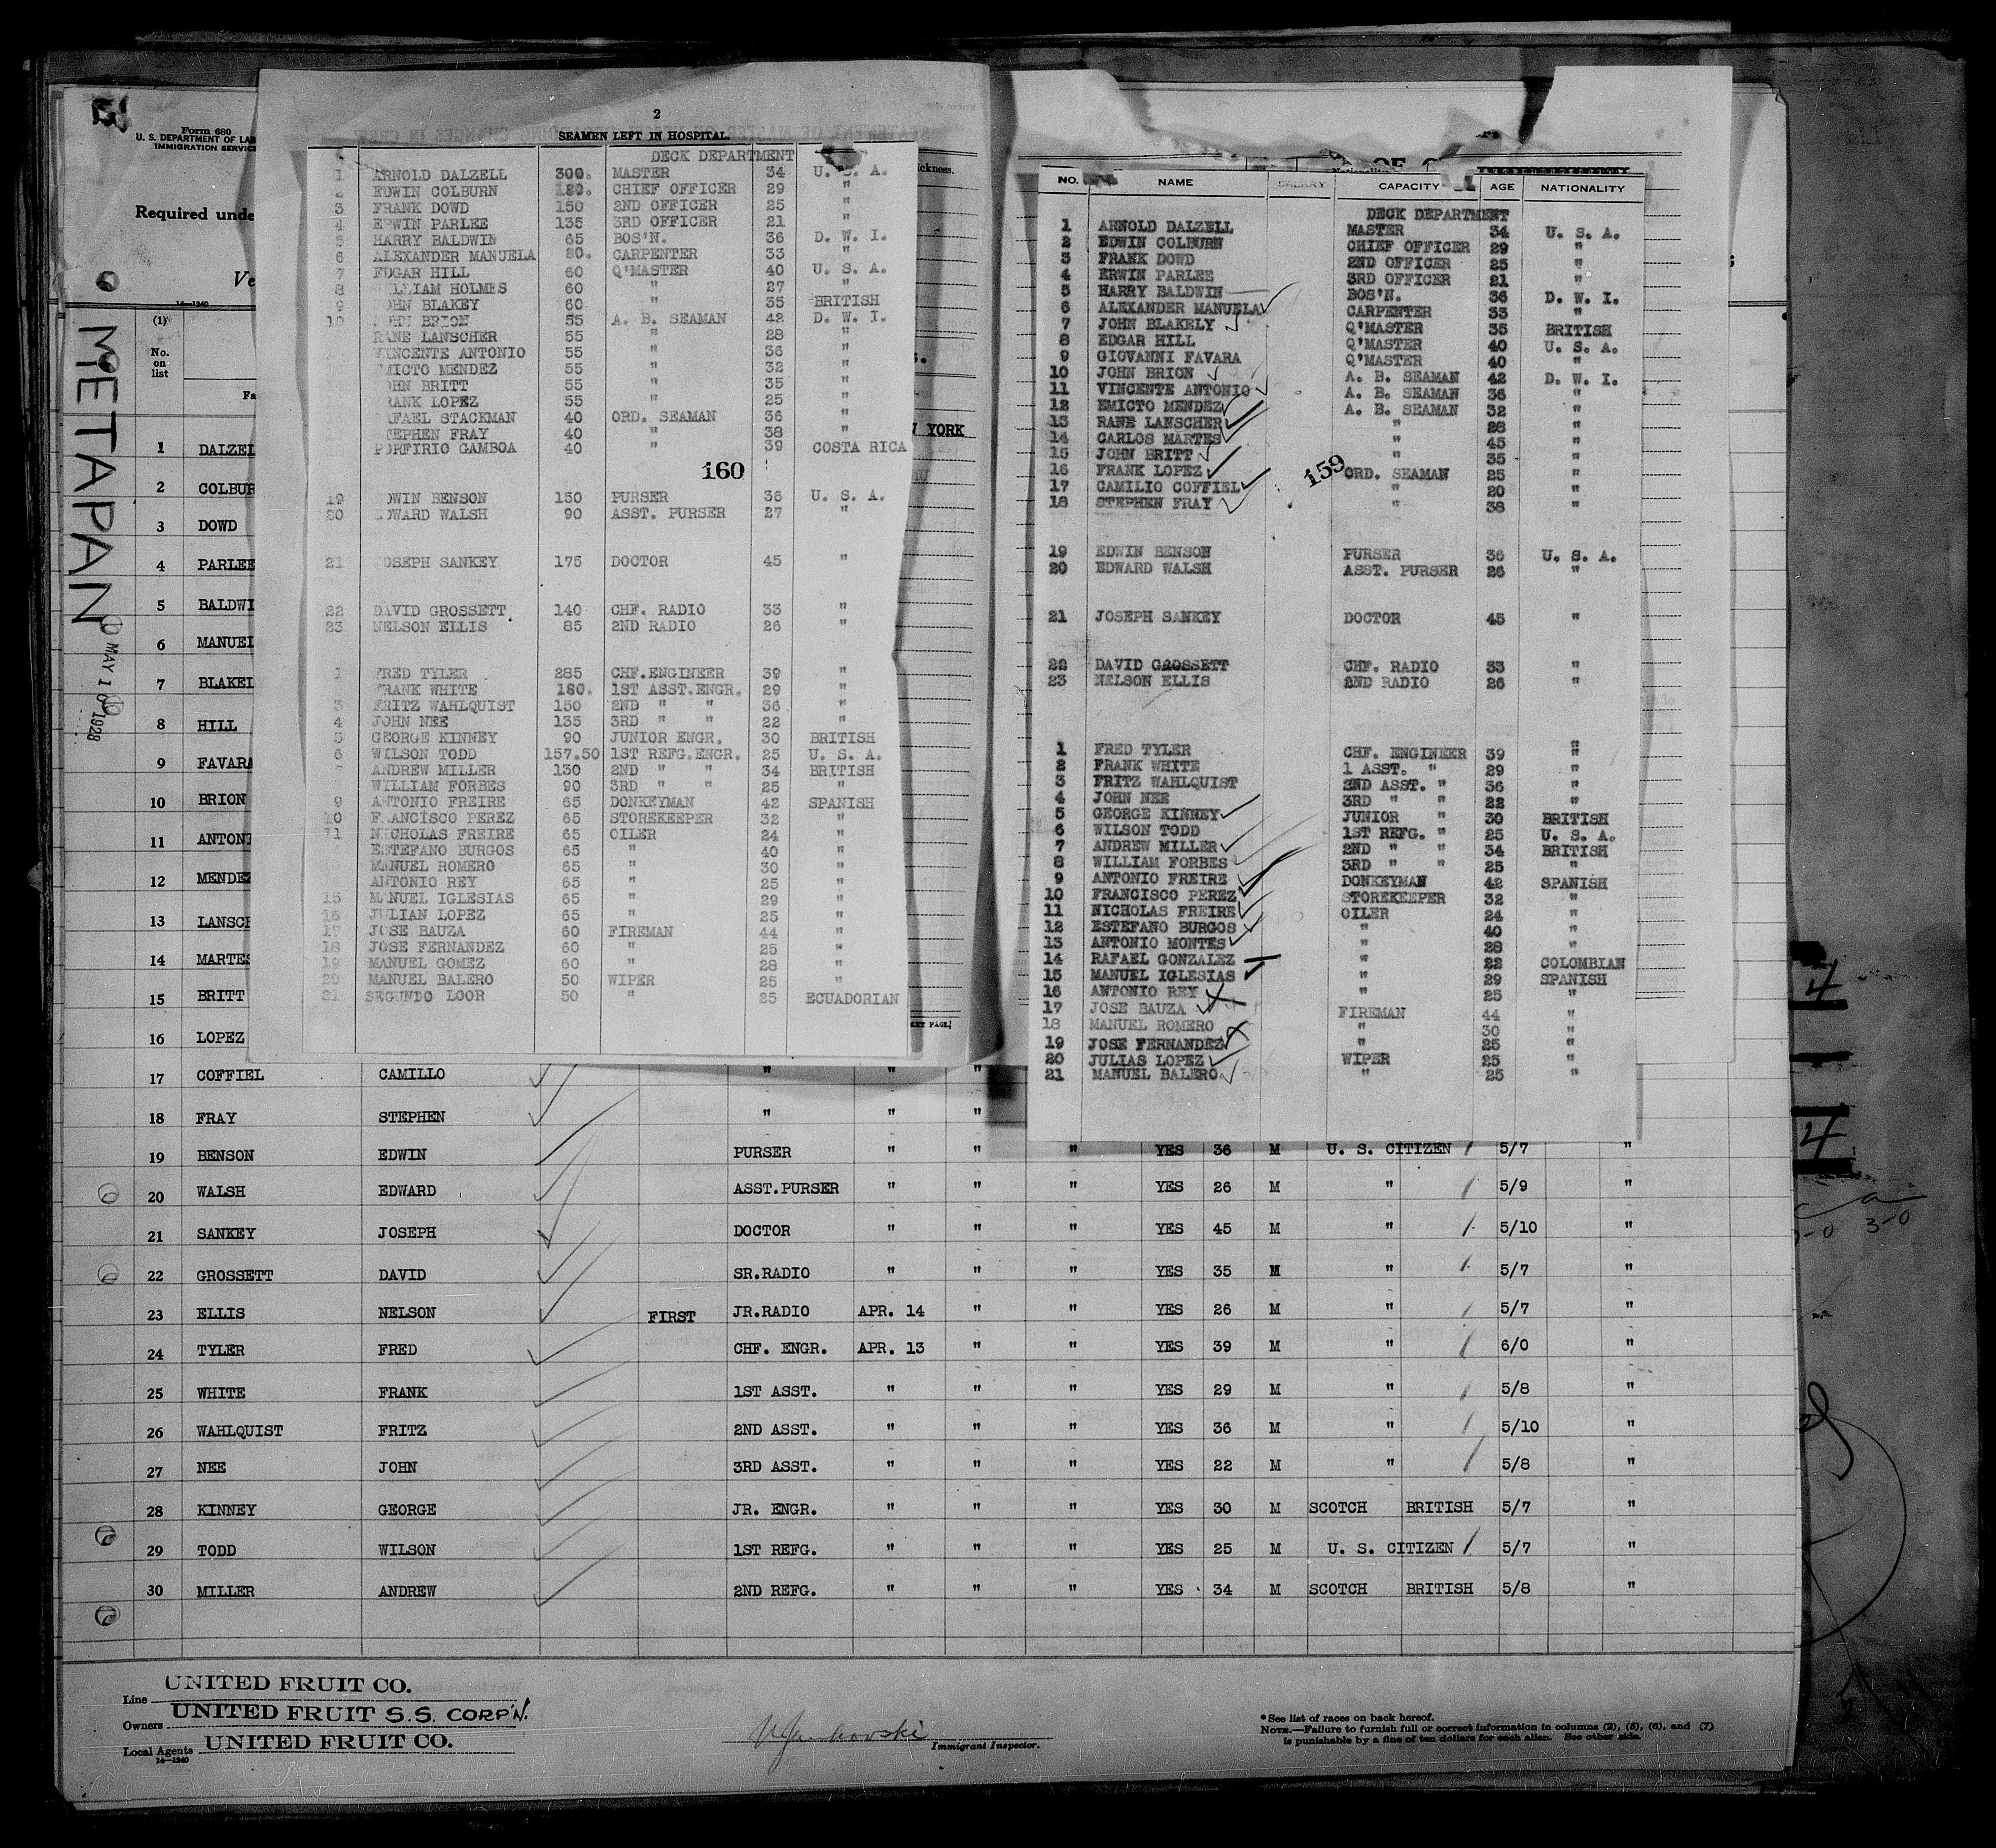 Form 680
U. S. DEPARTMENT OF LAB
IMMIGRATION SERVICE
Required unde
Ve
14—1240
METAPAN
MAY 10 1928
(1)
No.
on
list
Fa
1 DALZEL
2 COLBUR
3 DOWD
4 PARLEE
5 BALDWI
6 MANUEL
7 BLAKEL
8 HILL
9 FAVARA
10 BRION
11 ANTONI
12 MENDEZ
13 LANSCH
14 MARTES
15 BRITT
16 LOPEZ
2
SEAMEN LEFT IN HOSPITAL.
DECK DEPARTMENT
1 ARNOLD DALZELL 300. MASTER 34 U. S. A.
2 EDWIN COLBURN 180. CHIEF OFFICER 29 "
3 FRANK DOWD 150 2ND OFFICER 25 "
4 ERWIN PARLEE 135 3RD OFFICER 21 "
5 HARRY BALDWIN 65 BOS'N. 36 D. W. I.
6 ALEXANDER MANUELA 80. CARPENTER 33 "
7 EDGAR HILL 60 Q'MASTER 40 U. S. A.
8 WILLIAM HOLMES 60 " 27 "
9 JOHN BLAKEY 60 " 35 BRITISH
10 JOHN BRION 55 A. B. SEAMAN 42 D. W. I.
RANE LANSCHER 55 " 28 "
VINCENTE ANTONIO 55 " 36 "
EMICTO MENDEZ 55 " 32 "
JOHN BRITT 55 " 35 "
FRANK LOPEZ 55 " 25 "
RAFAEL STACKMAN 40 ORD. SEAMAN 36 "
STEPHEN FRAY 40 " 38 "
PORFIRIO GAMBOA 40 " 39 COSTA RICA
160
19 EDWIN BENSON 150 PURSER 36 U. S. A.
20 EDWARD WALSH 90 ASST. PURSER 27 "
21 JOSEPH SANKEY 175 DOCTOR 45 "
22 DAVID GROSSETT 140 CHF. RADIO 33 "
23 NELSON ELLIS 85 2ND RADIO 26 "
1 FRED TYLER 285 CHF.ENGINEER 39 "
FRANK WHITE 180. 1ST ASST.ENGR. 29 "
3 FRITZ WAHLQUIST 150 2ND " " 36 "
4 JOHN NEE 135 3RD " " 22 "
5 GEORGE KINNEY 90 JUNIOR ENGR. 30 BRITISH
6 WILSON TODD 157.50 1ST REFG.ENGR. 25 U. S. A.
7 ANDREW MILLER 130 2ND " " 34 BRITISH
WILLIAM FORBES 90 3RD " " 25 "
9 ANTONIO FREIRE 65 DONKEYMAN 42 SPANISH
10 FRANCISCO PEREZ 65 STOREKEEPER 32 "
11 NICHOLAS FREIRE 65 OILER 24 "
ESTEFANO BURGOS 65 " 40 "
MANUEL ROMERO 65 " 30 "
ANTONIO REY 65 " 25 "
15 MANUEL IGLESIAS 65 " 29 "
16 JULIAN LOPEZ 65 " 25 "
17 JOSE BAUZA 60 FIREMAN 44 "
18 JOSE FERNANDEZ 60 " 25 "
19 MANUEL GOMEZ 60 " 28 "
20 MANUEL BALERO 50 WIPER 25 "
21 SEGUNDO LOOR 50 " 25 ECUADORIAN
ickness.
YORK
NO. NAME SALARY CAPACITY AGE NATIONALITY
DECK DEPARTMENT
1 ARNOLD DALZELL MASTER 34 U. S. A.
2 EDWIN COLBURN CHIEF OFFICER 29 "
3 FRANK DOWD 2ND OFFICER 25 "
4 ERWIN PARLEE 3RD OFFICER 21 "
5 HARRY BALDWIN BOS'N. 36 D. W. I.
6 ALEXANDER MANUELA CARPENTER 33 "
7 JOHN BLAKELY Q'MASTER 35 BRITISH
8 EDGAR HILL Q'MASTER 40 U. S. A.
9 GIOVANNI FAVARA Q'MASTER 40 "
10 JOHN BRION A. B. SEAMAN 42 D. W. I.
11 VINCENTE ANTONIO A. B. SEAMAN 36 "
12 EMICTO MENDEZ A. B. SEAMAN 32 "
13 RANE LANSCHER " 28 "
14 CARLOS MARTES " 45 "
15 JOHN BRITT " 35 "
16 FRANK LOPEZ ORD. SEAMAN 25 "
17 CAMILIO COFFIEL " 20 "
18 STEPHEN FRAY " 38 "
159
19 EDWIN BENSON PURSER 36 U. S. A.
20 EDWARD WALSH ASST. PURSER 26 "
21 JOSEPH SANKEY DOCTOR 45 "
22 DAVID GROSSETT CHF. RADIO 33 "
23 NELSON ELLIS 2ND RADIO 26 "
1 FRED TYLER CHF. ENGINEER 39 "
2 FRANK WHITE 1 ASST. " 29 "
3 FRITZ WAHLQUIST 2ND ASST. " 36 "
4 JOHN NEE 3RD " " 22 "
5 GEORGE KINNEY JUNIOR " 30 BRITISH
6 WILSON TODD 1ST REFG. " 25 U. S. A.
7 ANDREW MILLER 2ND " " 34 BRITISH
8 WILLIAM FORBES 3RD " " 25 "
9 ANTONIO FREIRE DONKEYMAN 42 SPANISH
10 FRANCISCO PEREZ STOREKEEPER 32 "
11 NICHOLAS FREIRE OILER 24 "
12 ESTEFANO BURGOS " 40 "
13 ANTONIO MONTES " 28 "
14 RAFAEL GONZALEZ " 22 COLOMBIAN
15 MANUEL IGLESIAS " 29 SPANISH
16 ANTONIO REY " 25 "
17 JOSE BAUZA FIREMAN 44 "
18 MANUEL ROMERO " 30 "
19 JOSE FERNANDEZ " 25 "
20 JULIAS LOPEZ WIPER 25 "
21 MANUEL BALERO " 25 "
17 COFFIEL CAMILLO " " "
18 FRAY STEPHEN " " "
19 BENSON EDWIN PURSER " " " YES 36 M U. S. CITIZEN 5/7 "
20 WALSH EDWARD ASST.PURSER " " " YES 26 M " 5/9 "
21 SANKEY JOSEPH DOCTOR " " " YES 45 M " 5/10 "
22 GROSSETT DAVID SR.RADIO " " " YES 35 M " 5/7 "
23 ELLIS NELSON FIRST JR.RADIO APR. 14 " " YES 26 M " 5/7 "
24 TYLER FRED CHF. ENGR. APR. 13 " " YES 39 M " 6/0 "
25 WHITE FRANK 1ST ASST. " " " YES 29 M " 5/8 "
26 WAHLQUIST FRITZ 2ND ASST. " " " YES 36 M " 5/10 "
27 NEE JOHN 3RD ASST. " " " YES 22 M " 5/8 "
28 KINNEY GEORGE JR. ENGR. " " " YES 30 M SCOTCH BRITISH 5/7 "
29 TODD WILSON 1ST REFG. " " " YES 25 M U. S. CITIZEN 5/7 "
30 MILLER ANDREW 2ND REFG. " " " YES 34 M SCOTCH BRITISH 5/8 "
4
4
3-0
Line UNITED FRUIT CO.
Owners UNITED FRUIT S.S. CORP'N.
Local Agents UNITED FRUIT CO.
14—1240
Immigrant Inspector.
*See list of races on back hereof.
NOTE.—Failure to furnish full or correct information in columns (2), (5), (6), and (7)
is punishable by a fine of ten dollars for each alien. See other side.